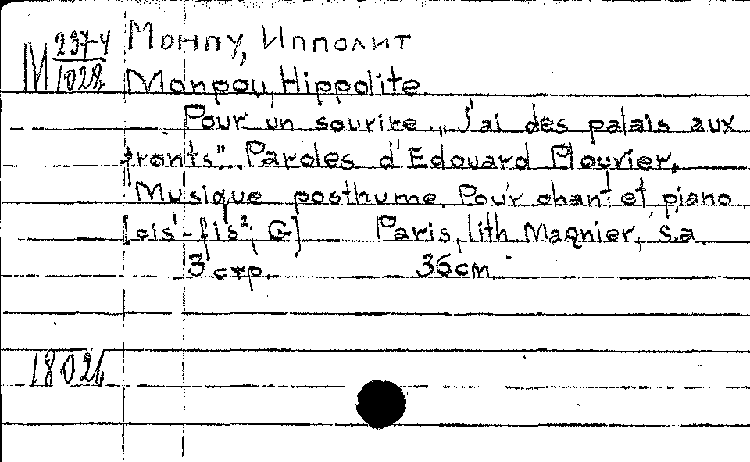 М 237-4/1028
Монпу, Ипполит
Monpou, Hippolite.
Pour un sourire. „J'ai des palais aux
fronts". Paroles d'Edouard Plouvier.
Musique posthume. Pour chant et piano
[cis¹-fis², G] Paris, lith. Magnier, s.a.
3 стр. 36 см.
18026